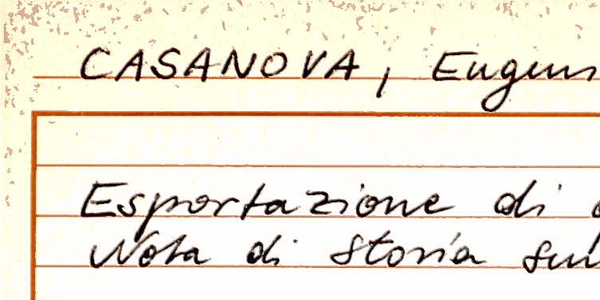 CASANOVA, Eugen
Esportazione di
Nota di Storia